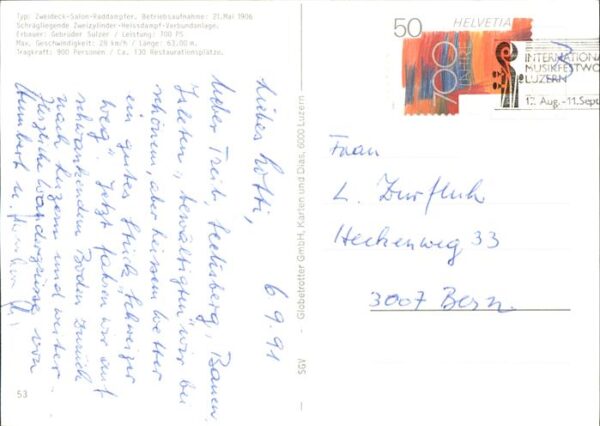 Typ: Zweideck-Salon-Raddampfer. Betriebsaufnahme: 21. Mai 1906
Schrägliegende Zweizylinder-Heissdampf-Verbundanlage.
Erbauer: Gebrüder Sulzer / Leistung: 700 PS
Max. Geschwindigkeit: 28 km/h / Länge: 63.00 m.
Tragkraft: 900 Personen / Ca. 130 Restaurationsplätze.
6.9.91
Liebes Lotti,
Ueber Treib, Seelisberg, Bauen,
"bewältigten" wir bei
schönem, aber heissem Wetter
ein gutes Stück "Schweizer
weg". Jetzt fahren wir auf
schwankendem Boden zurück
nach Luzern und weiter.
Herzliche Wandergrüsse von
53
SGV - Globetrotter GmbH, Karten und Dias, 6000 Luzern
50 HELVETIA
700 JAHRE
INTERNATIONA
MUSIKFESTWO
LUZERN
17. Aug. - 11. Sept
Frau
L. Zurfluh
Heckenweg 33
3007 Bern